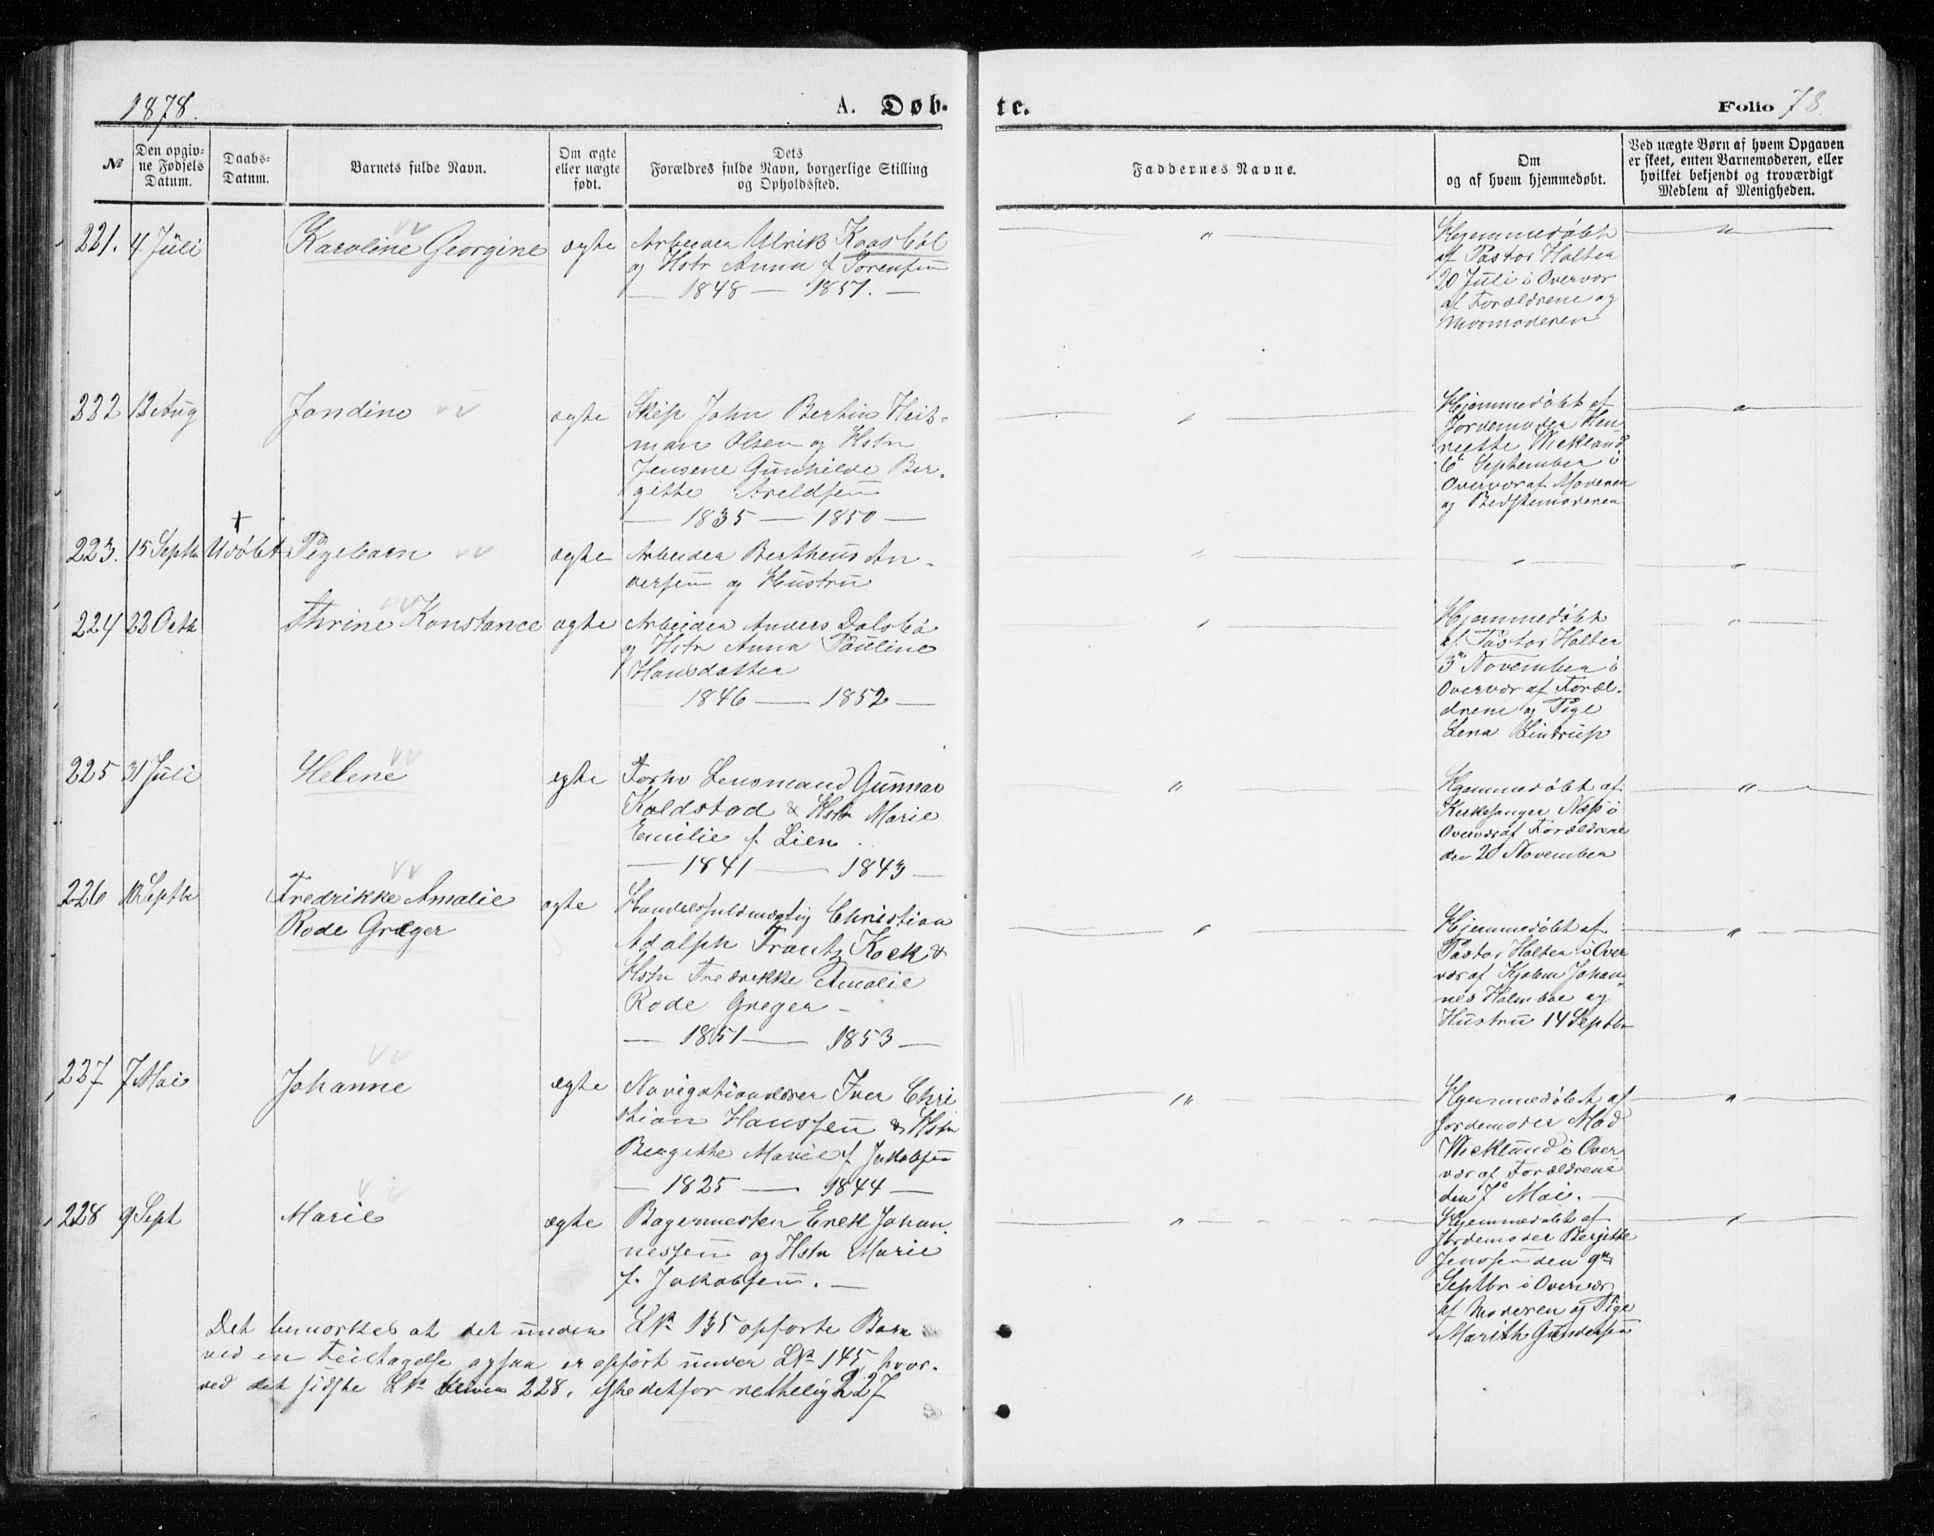 1878.
A. Døb-
te.
Folio 78.
№
Den opgiv-
ne Fødsels
Datum.
Daabs-
Datum.
Barnets fulde Navn.
Om ægte
eller uægte
født.
Dets
Forældres fulde Navn, borgerlige Stilling
og Opholdssted.
Faddernes Navne.
Om
og af hvem hjemmedøbt.
Ved uægte Børn af hvem Opgaven
er skeet, enten Barnemoderen, eller
hvilket bekjendt og troværdigt
Medlem af Menigheden.
221. 4 Juli
Karoline Georgine
ægte
Arbeider Ulrik Kaasbøl
og Hstr Anna f Sørensen
— 1848 — 1851. —
Hjemmedøbt
af Pastor Holter
20 Juli i Overvær
af Forældrene og
222 12 Aug
Jondine
ægte
Skip John Bertin Heit-
man Olsen og Hstr
Jensene Gunhilde Ber-
gitte Areldsen
— 1835 — 1850 —
Hjemmedøbt af
Jordemoder Hen
riette Wickland
6te September i
Overvær af Moderen
og Bedstemoderen
223. 15 Septb Udøbt
Pigebarn
ægte
Arbeider Bertheus An-
dersen og Hustru
224 22 Octb
Thrine Konstance
ægte
Arbeider Anders Dalsbø
og Hstr Anna Pauline
Hansdatter
1846 — 1852 —
Hjemmedøbt
af Pastor Holter
3de November i
Overvær af Foræl-
drene og Pige
Lena Lintrup
225 31 Juli
Helene
egte
Forhv Lensmand Gunnar
Koldstad & Hstr Marie
Emilie f. Lien.
— 1841 — 1843 —
Hjemmedøbt af
Kirkesanger Næss i
Overvær af Forældrene
den 20 November
226 12 Septb
Fredrikke Amalie
Rode Greger
ægte
Handelsfuldmægtig Christian
Adolph Frantz Koek &
Hstr Fredrikke Amalie
Rode Greger —
— 1851 — 1853 —
Hjemmedøbt af
Pastor Holter i Over
vær af Kjøbm Johan-
nes Holmboe og
Hustru 14 Septbr
227 7 Mai
Johanne
ægte
Navigationslærer Iver Chri
stian Hanssen & Hstr
Bergitte Marie f. Jakobsen
— 1825 — 1844 —
Hjemmedøbt af
Jordemoder Mad
Wicklund i Over
vær af Forældrene
den 7de Mai. —
228 9 Sept
Marie
ægte
Bagermester Erik Johan-
nessen og Hstr Marie
f. Jakobsen. —
Hjemmedøbt af
Jordemoder Bergitte
Jenssen den 9de
Septbr i Overvær
af Moderen og Pige
Marith Gundersen
Det bemærkes at det under L№ 135 opførte Barn
ved en Feiltagelse ogsaa er opført under L№ 145, hvor-
ved det sidste L№ bliver 228, istedetfor rettelig 227